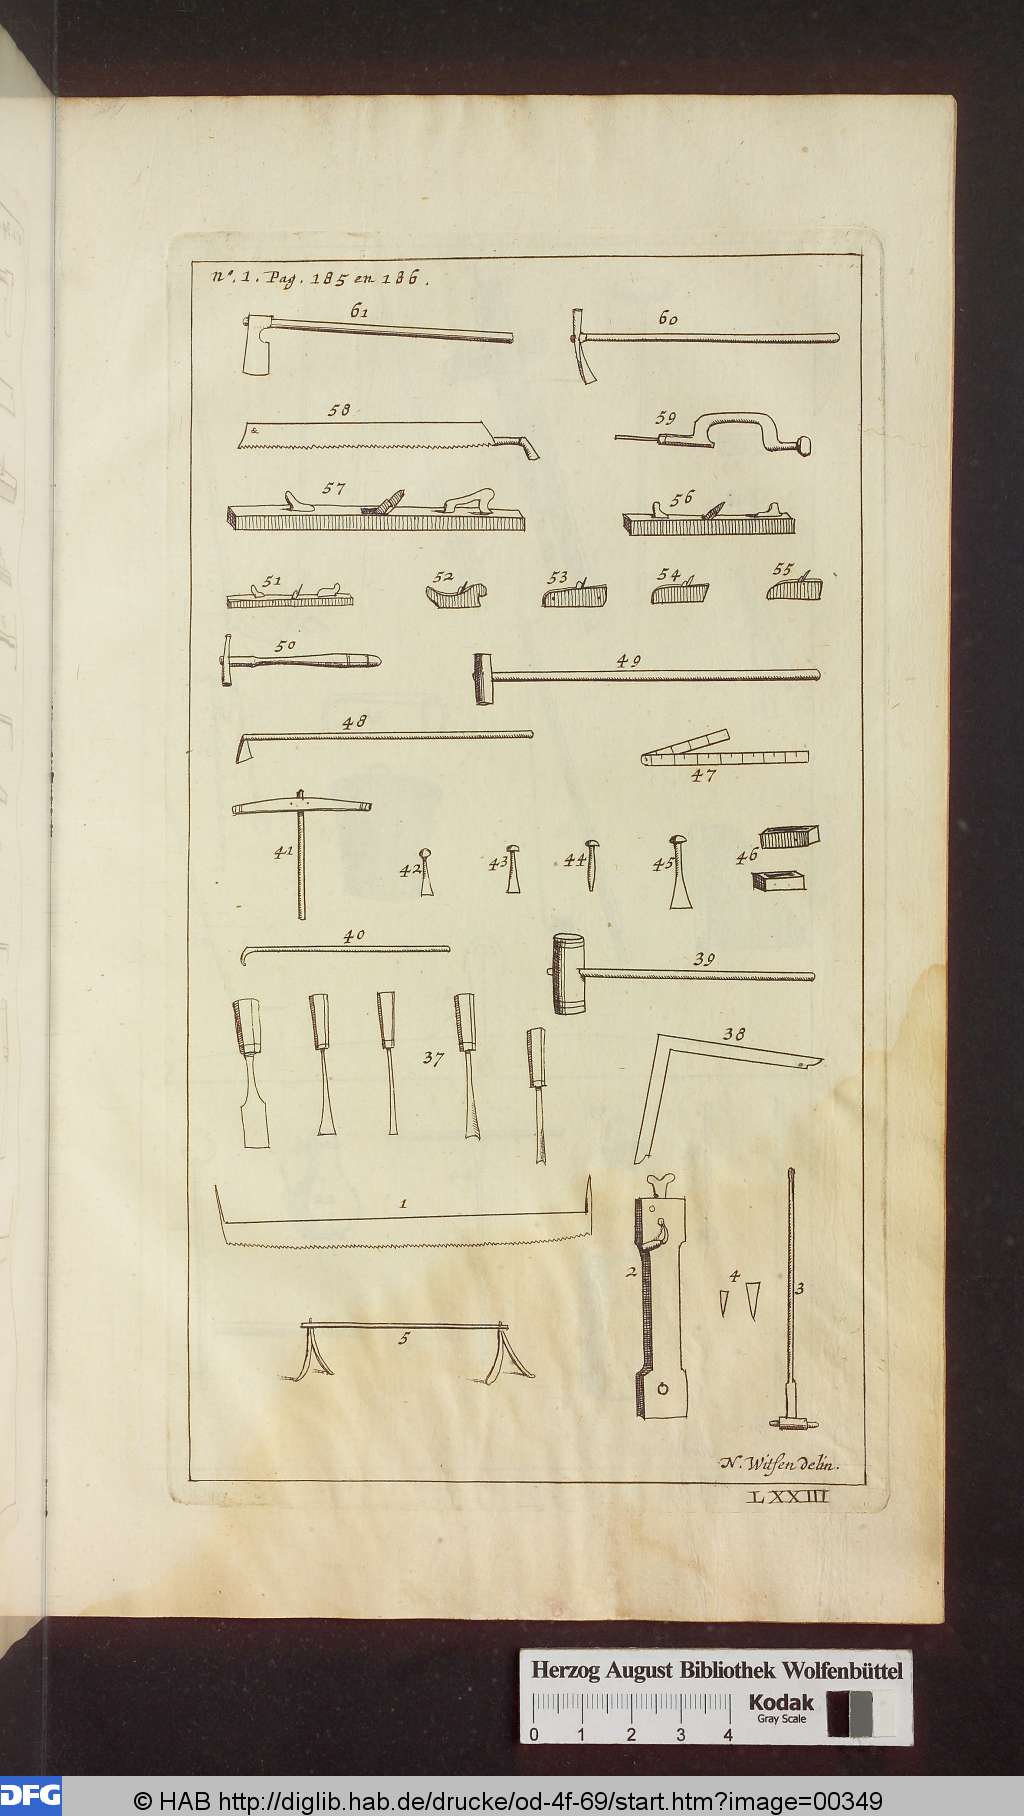 N°. 1. Pag. 185 en 186.
61
60
58
59
&
57
56
51
52
53
54
55
50
49
48
47
41
42
43
44
45
46
40
39
37
38
1
2
4
3
5
N. Witsen Delin.
LXXIII
Herzog August Bibliothek Wolfenbüttel
Kodak
Gray Scale
0 1 2 3 4
DFG © HAB http://diglib.hab.de/drucke/od-4f-69/start.htm?image=00349